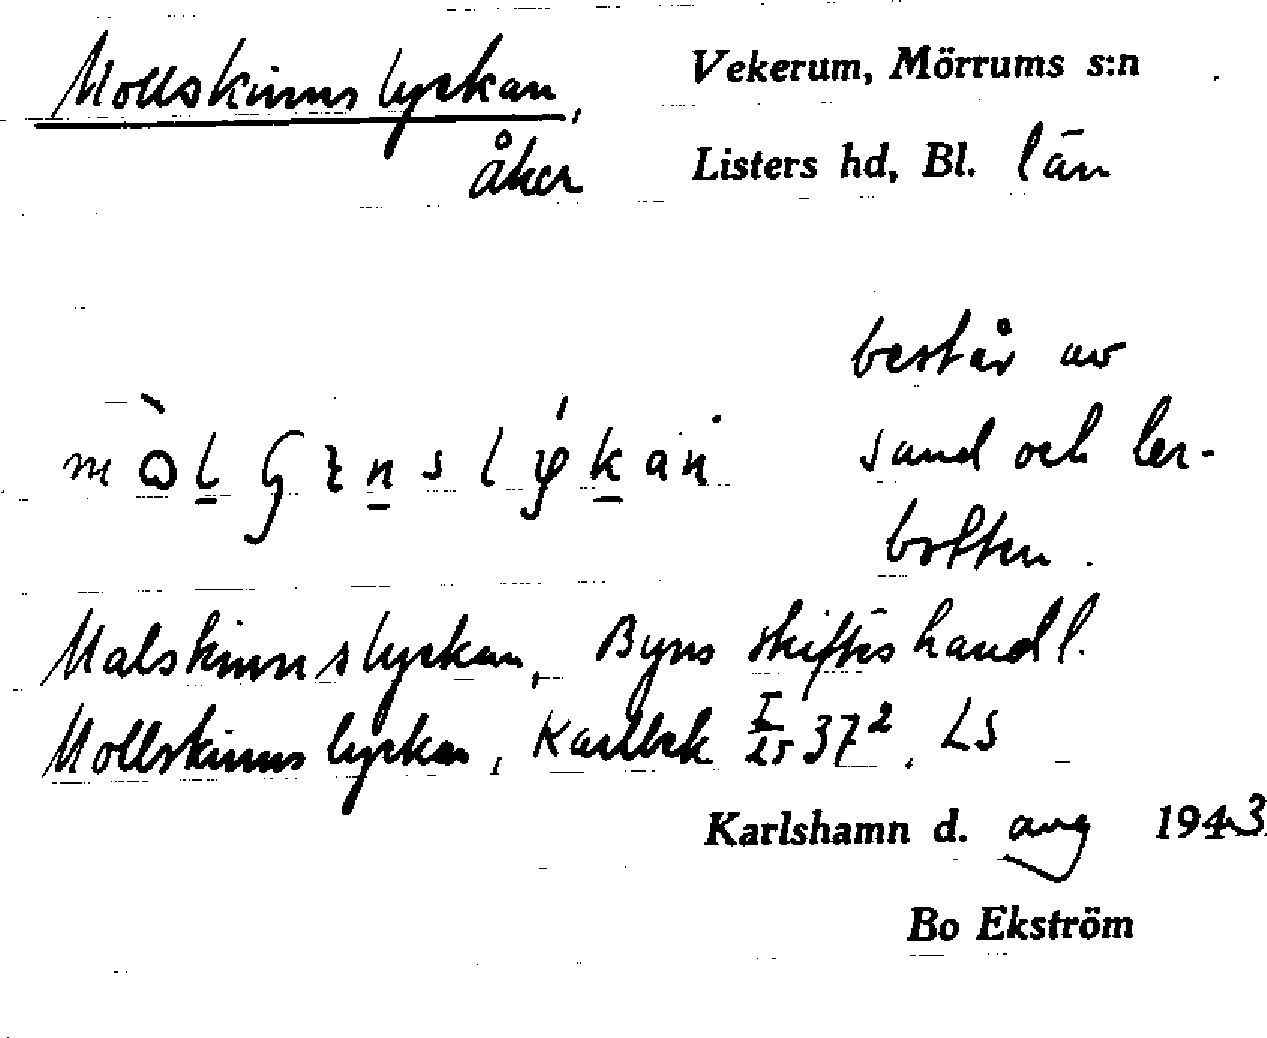 Mollskinnslyckan, Vekerum, Mörrums s:n
åker Listers hd, Bl. län
består av
sand och ler-
botten.
Malskinnslyckan, Byns skifteshandl.
Mollskinnslyckan, Karlbek I/25 37², LS
Karlshamn d. aug 1943
Bo Ekström